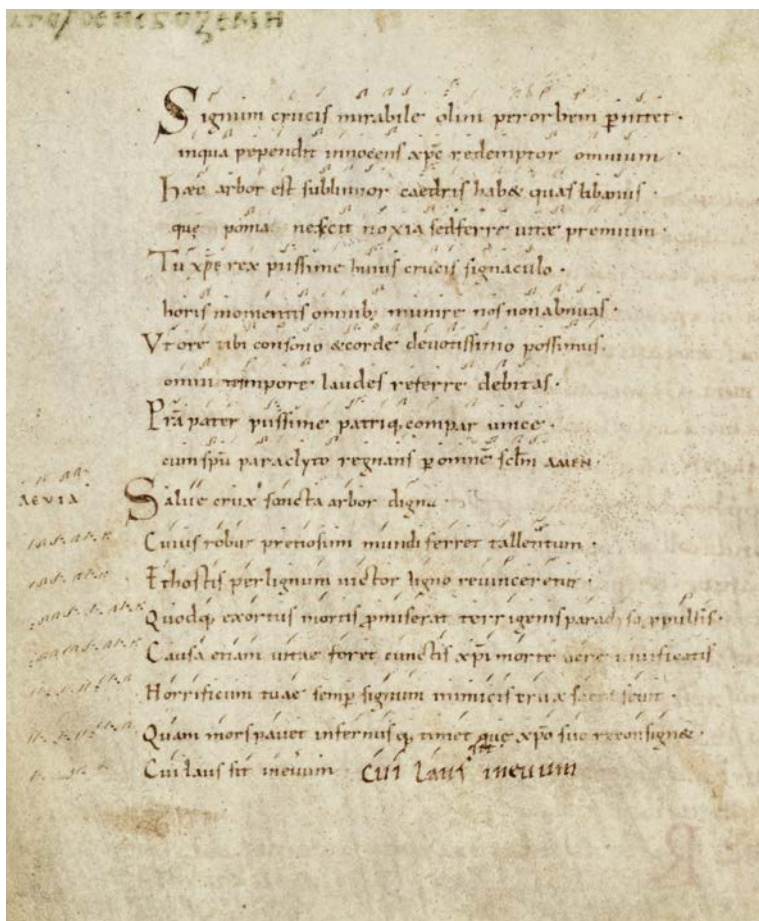 Signum crucis mirabile olim per orbem p̄nitet ·
inqua pependit innocens xp̄c redemptor omnium
Haec arbor est sublimior caedris hab& quas libanus ·
quę poma nescit noxia sedferre uitae premium ·
Tu xp̄e rex piissime huius crucis signaculo ·
horis momentis omnib; munire nos non abnuas ·
Vt ore tibi consono & corde deuotissimo possimus
omni tempore laudes referre debitas ·
pater piissime patriq, compar unice ·
cum sp̄u paraclyto regnans p̄ omne sclm AMEN ·
AEVIA Salue crux sancta arbor digna
Cuius robur pretiosum mundi ferret tallentum ·
Et hostis per lignum uictor ligno reuinceretur ·
Quodq, exortus mortis p̄miserat terrigenis paradiso
Causa etiam uitae foret cunctis xp̄i morte uiuificatis
Horrificum tuae semp signum inimicis
Quam mors pauet infernusq, timet quę xp̄o suo reconsign&
Cui laus sit ineuum cui laus sit ineuum